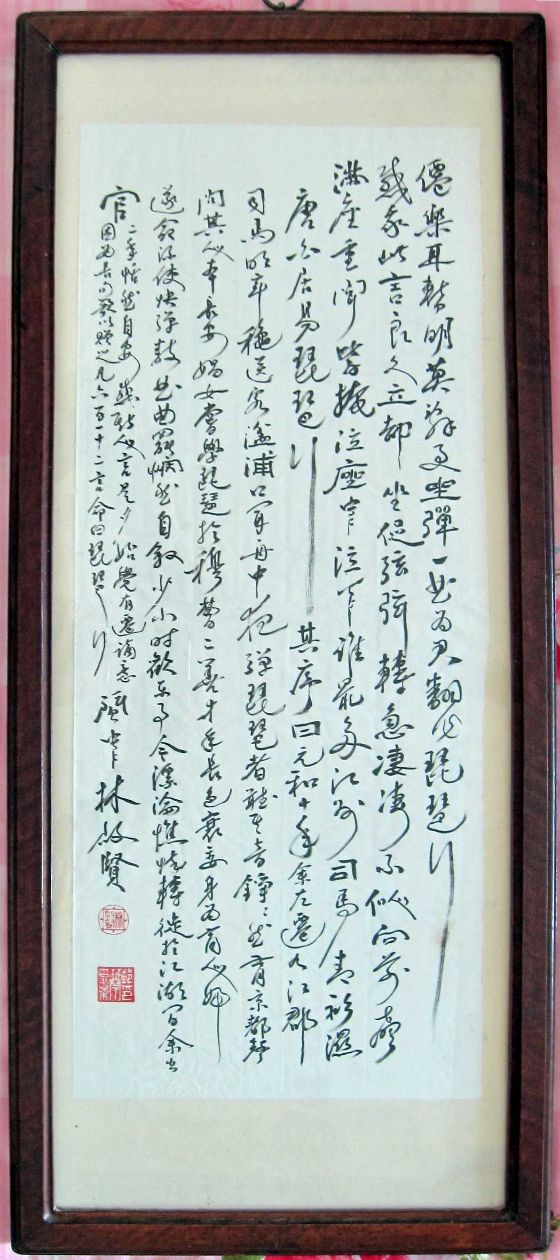 僊樂耳暫明莫辭更坐彈一曲為君翻作琵琶行
感我此言良久立却坐促弦弦轉急凄凄不似向前聲
滿座重聞皆掩泣座中泣下誰最多江州司馬青衫濕
唐白居易琵琶行 其序曰元和十年余左遷九江郡
司馬明年秋送客湓浦口聞舟中夜彈琵琶者聽其音錚錚然有京都聲
問其人本長安娼女嘗學琵琶於穆曹二善才年長色衰委身為賈人婦
遂命酒使快彈數曲曲罷憫然自敘少小時歡樂事今漂淪憔悴轉徙於江湖間余出
官二年恬然自安感斯人言是夕始覺有遷謫意
因為長句歌以贈之凡六百一十二言命曰琵琶行
林啟賢